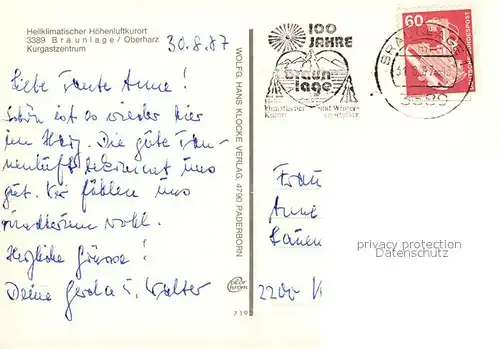 Heilklimatischer Höhenluftkurort
3389 Braunlage / Oberharz
Kurgastzentrum
30.8.87
Liebe Tante Anne!
Schön ist es wieder hier
im Harz. Die gute Tan-
nenluft bekommt uns
gut. Wir fühlen uns
rundherum wohl.
Herzliche Grüsse!
Deine Gerda u. Walter
WOLFG. HANS KLOCKE VERLAG, 4790 PADERBORN
719
100
JAHRE
braun
lage
Heilklimatischer
Kurort
und Winter-
sportplatz
BRAUNLAGE
3389
60
DEUTSCHE BUNDESPOST
Frau
Anne
2200
privacy protection
Datenschutz